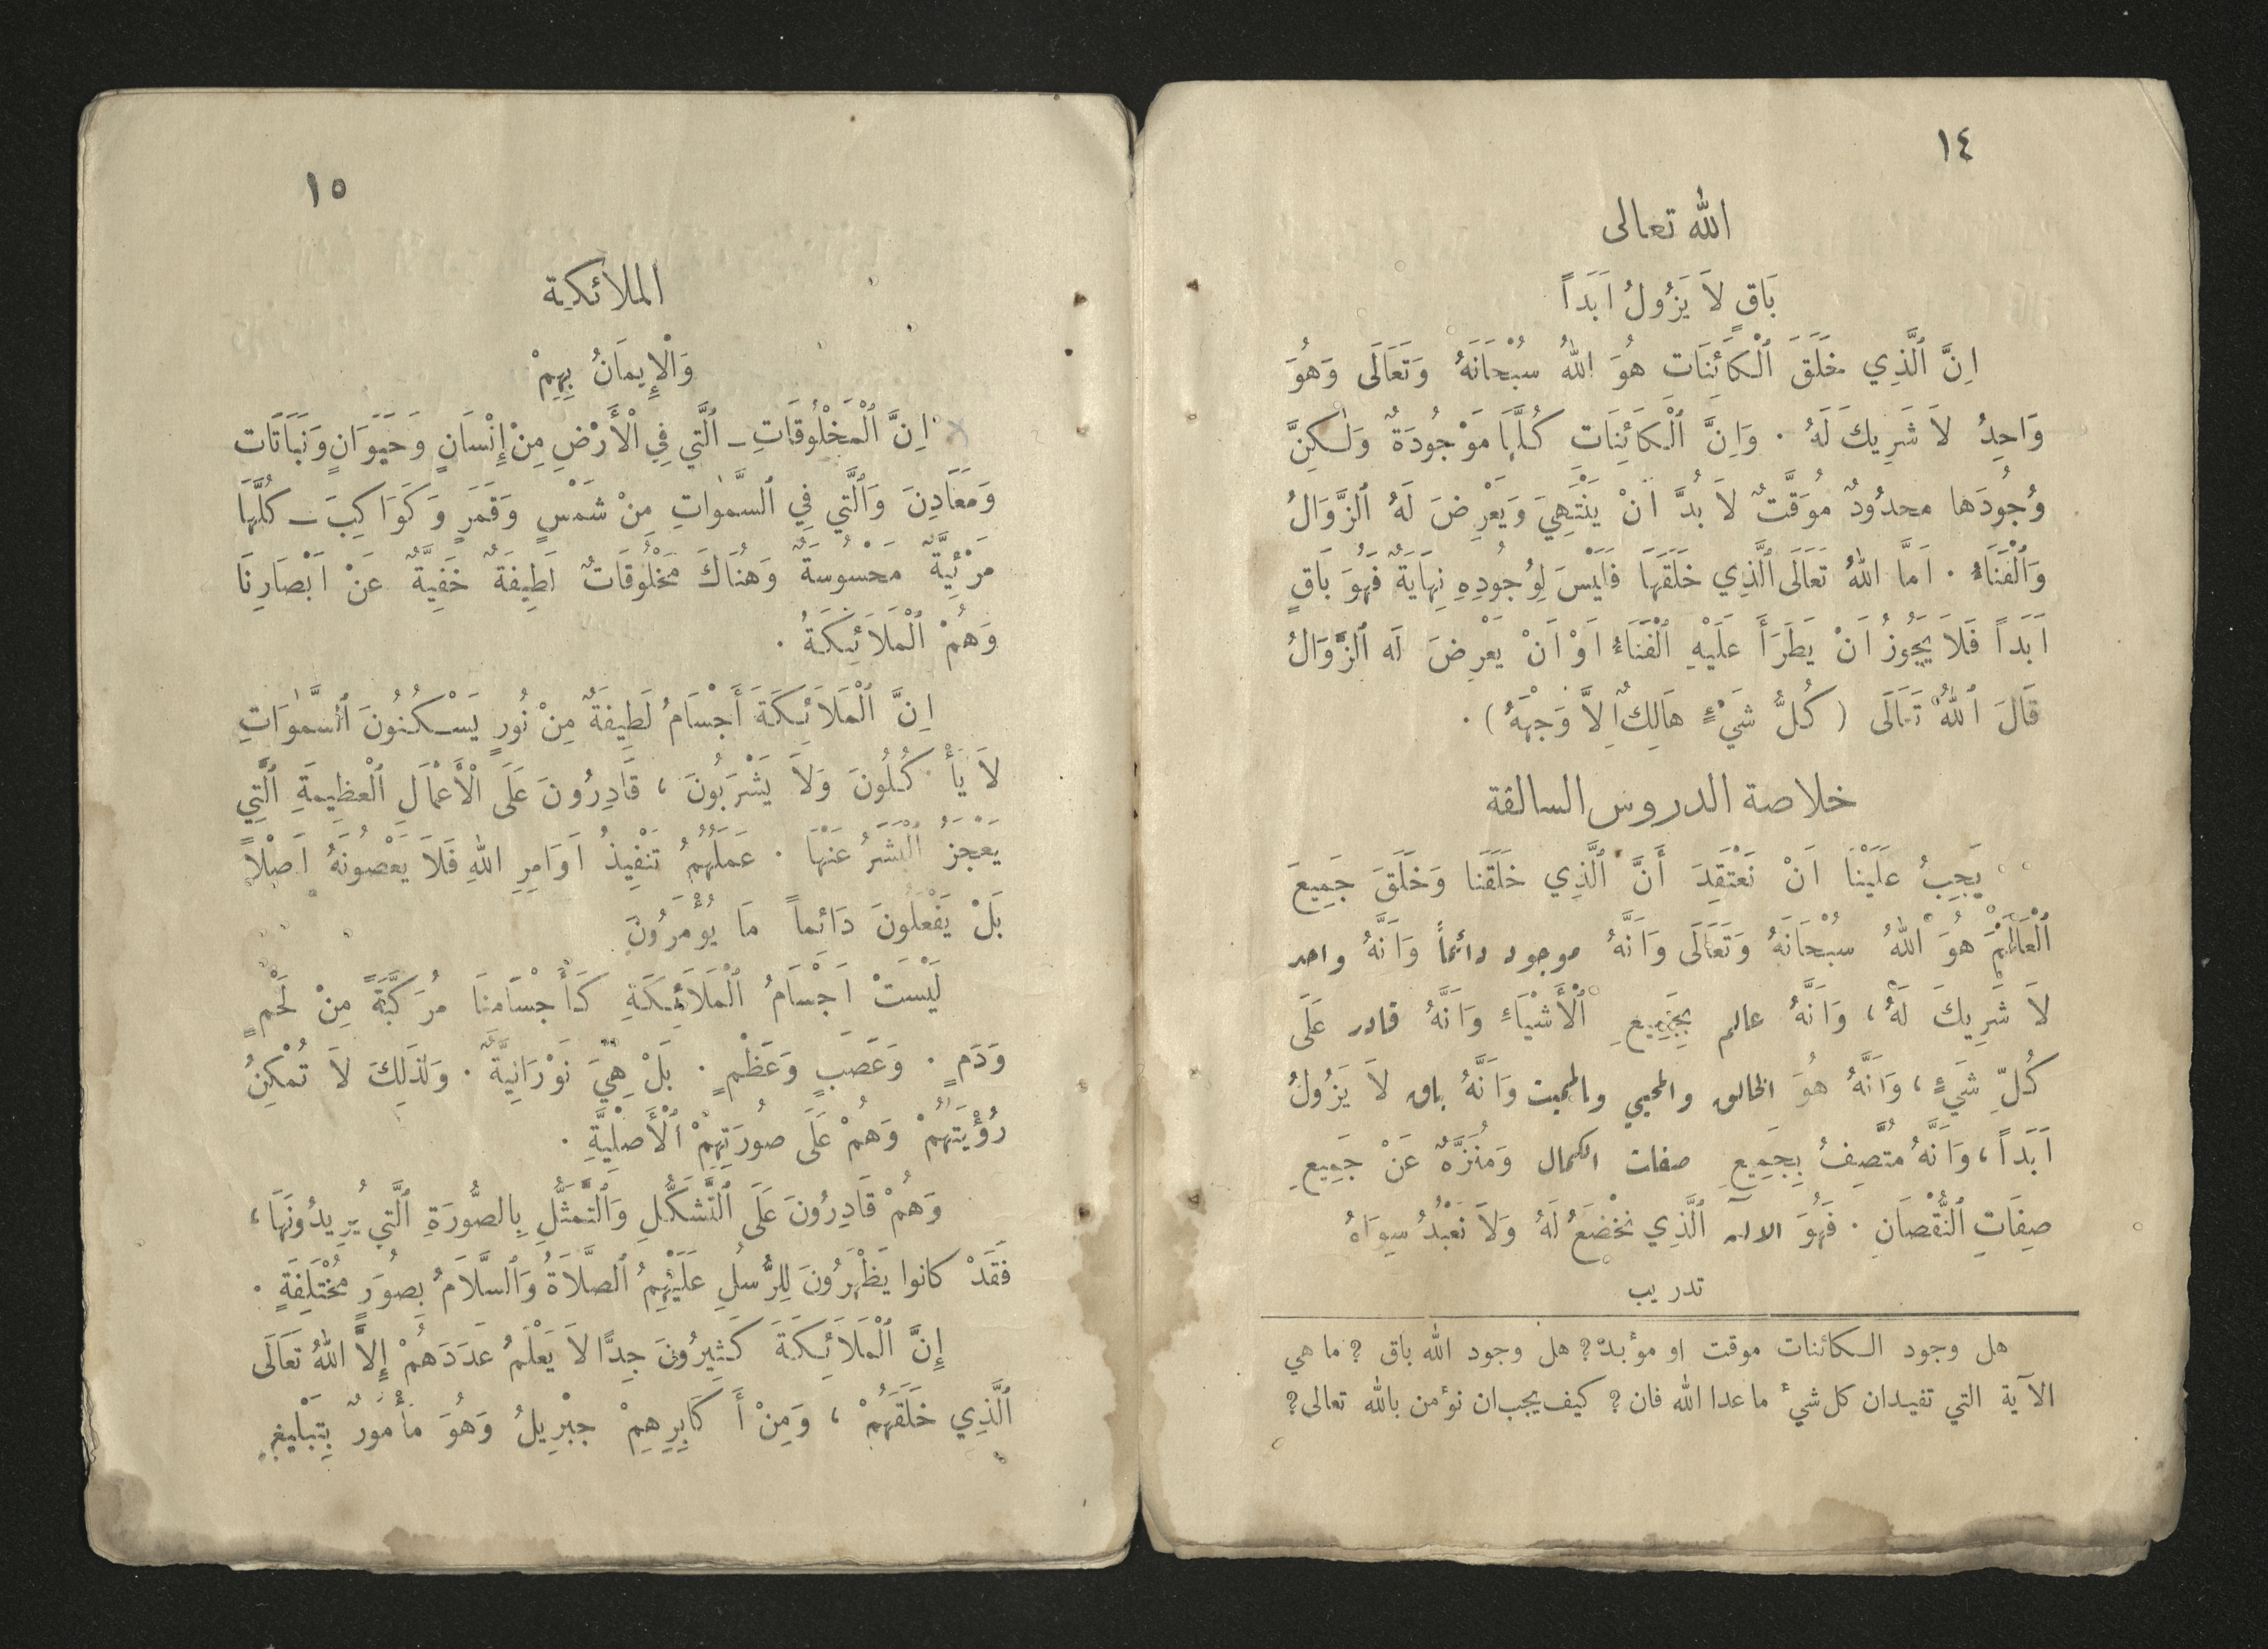 ١٤
الله تعالى
بَاقٍ لاَ يَزُولُ اَبَداً
اِنَّ ٱلَّذِي خَلَقَ ٱلْكَائِنَاتِ هُوَ اللهُ سُبْحَانَهُ وَتَعَالَى وَهُوَ
وَاحِدٌ لاَ شَرِيكَ لَهُ . وَاِنَّ ٱلْكَائِنَاتِ كُلَّهَا مَوْجُودَةٌ وَلٰكِنَّ
وُجُودَها محدُودٌ مُوَقَّتٌ لاَ بُدَّ اَنْ يَنْتَهِيَ وَيَعْرِضَ لَهُ ٱلزَّوَالُ
وَٱلْفَنَاءُ . اَمَّا اللهُ تَعَالَى ٱلَّذِي خَلَقَهَا فَلَيْسَ لِوُجُودِهِ نِهَايَةٌ فَهُوَ بَاقٍ
اَبَداً فَلاَ يَجُوزُ اَنْ يَطْرَأَ عَلَيْهِ ٱلْفَنَاءُ اَوْ اَنْ يَعْرِضَ لَه ٱلزَّوَالُ
قَالَ ٱللهُ تَعَالَى ( كُلُّ شَيْءٍ هَالِكٌ اِلاَّ وَجْهَهُ ) .
خلاصة الدروس السالفة
يَجِبُ عَلَيْنَا اَنْ نَعْتَقِدَ أَنَّ ٱلَّذِي خَلَقَنَا وَخَلَقَ جَمِيعَ
ٱلْعَالَمِ هُوَ ٱللهُ سُبْحَانَهُ وَتَعَالَى وَاَنَّهُ موجود دائماً وَاَنَّهُ واحد
لاَ شَرِيكَ لَهُ ، وَاَنَّهُ عالم بِجَمِيعِ ٱلْأَشْيَاءِ وَاَنَّهُ قادر عَلَى
كُلِّ شَيْءٍ ، وَاَنَّهُ هُوَ الخالق والمحيي والمميت وَاَنَّهُ باق لاَ يَزُولُ
اَبَداً ، وَاَنَّهُ مُتَّصِفٌ بِجَمِيعِ صفات الكمال وَمُنَزَّهٌ عَنْ جَمِيعِ
صِفَاتِ ٱلنُّقْصَانِ . فَهُوَ الاله ٱلَّذِي نَخْضَعُ لَهُ وَلاَ نَعْبُدُ سِوَاهُ
تدريب
هل وجود الكائنات موقت او مؤبد ؟ هل وجود الله باق ؟ ما هي
الآية التي تفيد ان كل شيء ما عدا الله فان ؟ كيف يجب ان نؤمن بالله تعالى ؟
١٥
الملائكة
وَالْإِيمَانُ بِهِمْ
اِنَّ ٱلْمَخْلُوقَاتِ ــ ٱلَّتي فِي الْأَرْضِ مِنْ إِنْسَانٍ وَحَيَوَانٍ وَنَبَاتَات
وَمَعَادِنَ وَٱلَّتي فِي ٱلسَّمٰوَاتِ مِنْ شَمْسٍ وَقَمَرٍ وَكَوَاكِبَ ــ كُلَّهَا
مَرْئِيَّةٌ مَحْسُوسَةٌ وَهُنَاكَ مَخْلُوقَاتٌ لَطِيفَةٌ خَفِيَّةٌ عَنْ اَبْصَارِنَا
وَهُمْ ٱلْمَلاَئِكَةُ .
اِنَّ ٱلْمَلاَئِكَةَ أَجْسَامٌ لَطِيفَةٌ مِنْ نُورٍ يَسْكُنُونَ ٱلسَّمٰوَاتِ
لاَ يَأْكُلُونَ وَلاَ يَشْرَبُونَ ، قَادِرُونَ عَلَى الْأَعْمَالِ ٱلْعَظِيمَةِ ٱلَّتِي
يَعْجَزُ ٱلْبَشَرُ عَنْهَا . عَمَلُهُمُ تَنْفِيذُ اَوَامِرِ اللهِ فَلاَ يَعْصُونَهُ اَصْلاً
بَلْ يَفْعَلُونَ دَائِماً مَا يُؤْمَرُونَ
لَيْسَتْ اَجْسَامُ ٱلْمَلاَئِكَةِ كَأَجْسَامِنَا مُرَكَّبَةً مِنْ لَحْمٍ
وَدَمٍ . وَعَصَبٍ وَعَظْمٍ . بَلْ هِيَ نَوْرَانِيَّةٌ . وَلِذٰلِكَ لاَ تُمْكِنُ
رُؤْيَتُهُمْ وَهُمْ عَلَى صُورَتِهِمْ ٱلْأَصْلِيَّةِ .
وَهُمْ قَادِرُونَ عَلَى ٱلتَّشَكُّلِ وَٱلتَّمَثُّلِ بِالصُّورَةِ ٱلَّتي يُرِيدُونَهَا ،
فَقَدْ كانوا يَظْهَرُونَ لِلرُّسُلِ عَلَيْهِمُ ٱلصَّلاَةُ وَٱلسَّلاَمُ بِصُوَرٍ مُخْتَلِفَةٍ .
إِنَّ ٱلْمَلاَئِكَةَ كَثِيرُونَ جِدًّا لاَ يَعْلَمُ عَدَدَهُمْ إِلاَّ اللهُ تَعَالَى
ٱلَّذِي خَلَقَهُمْ ، وَمِنْ أَكَابِرِهِمْ جِبْرِيلُ وَهُوَ مَأْمُورٌ بِتَبْلِيغِ